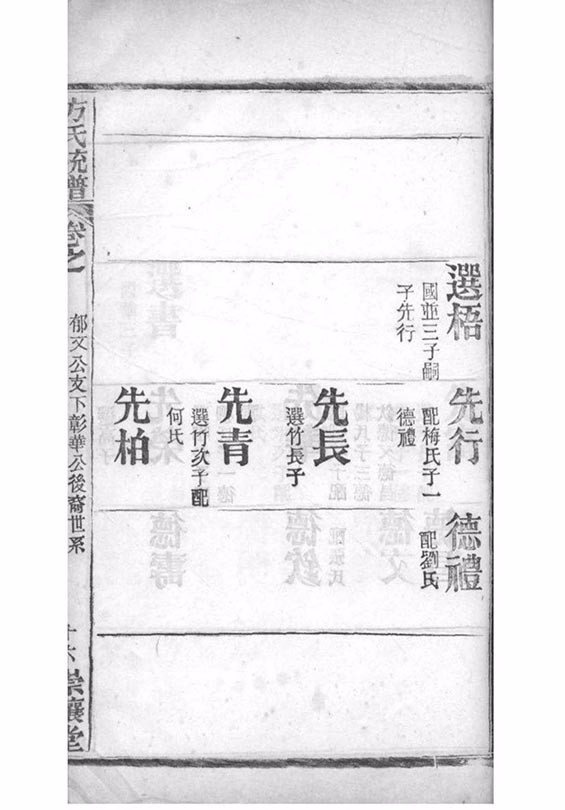 選梧
國並三子嗣
子先行
先行
配梅氏子一
德禮
先長
選竹長子
先青
選竹次子配
何氏
先柏
德禮
配劉氏
方氏統譜
卷之
郁文公支下彰華公後裔世系
十六
崇讓堂